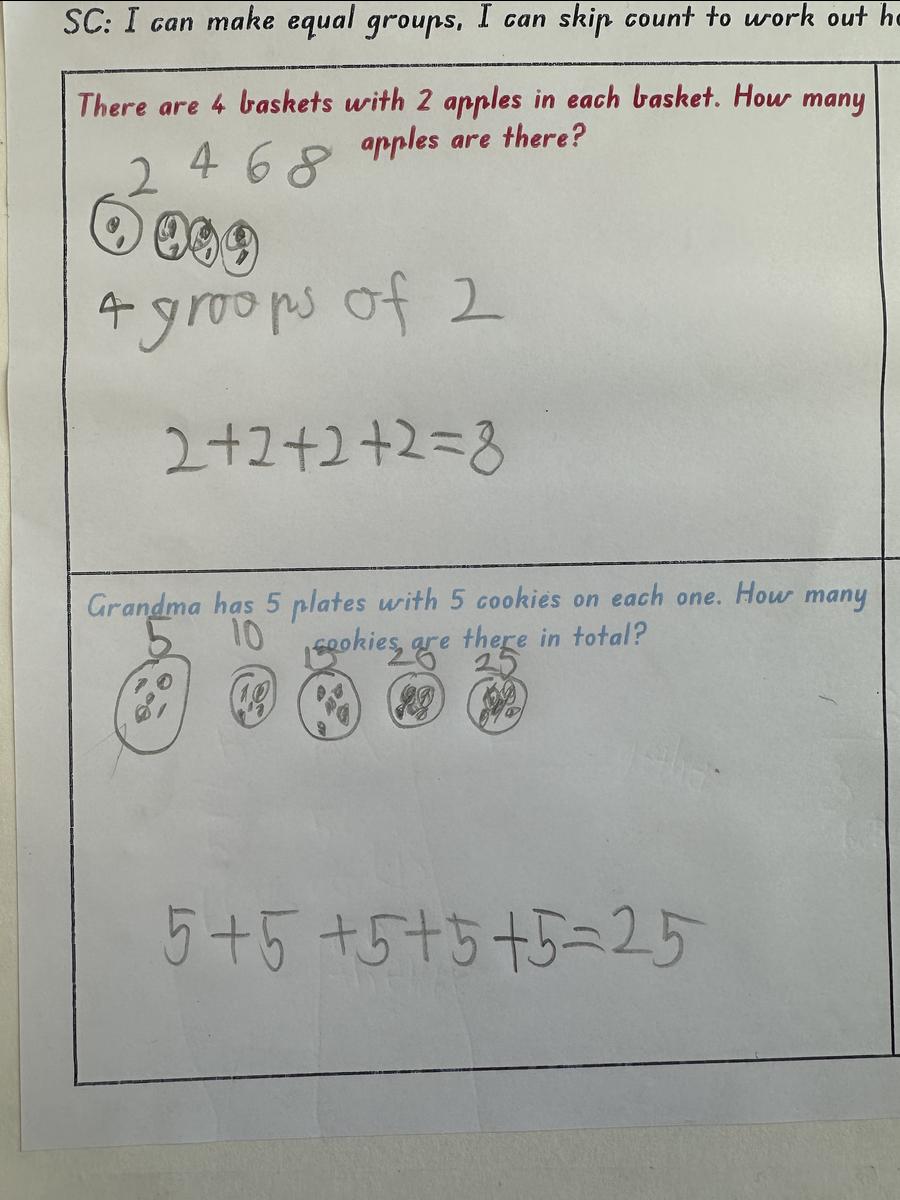 SC: I can make equal groups, I can skip count to work out
There are 4 baskets with 2 apples in each basket. How many
apples are there?
2 4 6 8
4 groops of 2
2+2+2+2=8
Grandma has 5 plates with 5 cookies on each one. How many
cookies are there in total?
5 10 15 20 25
5+5+5+5+5=25